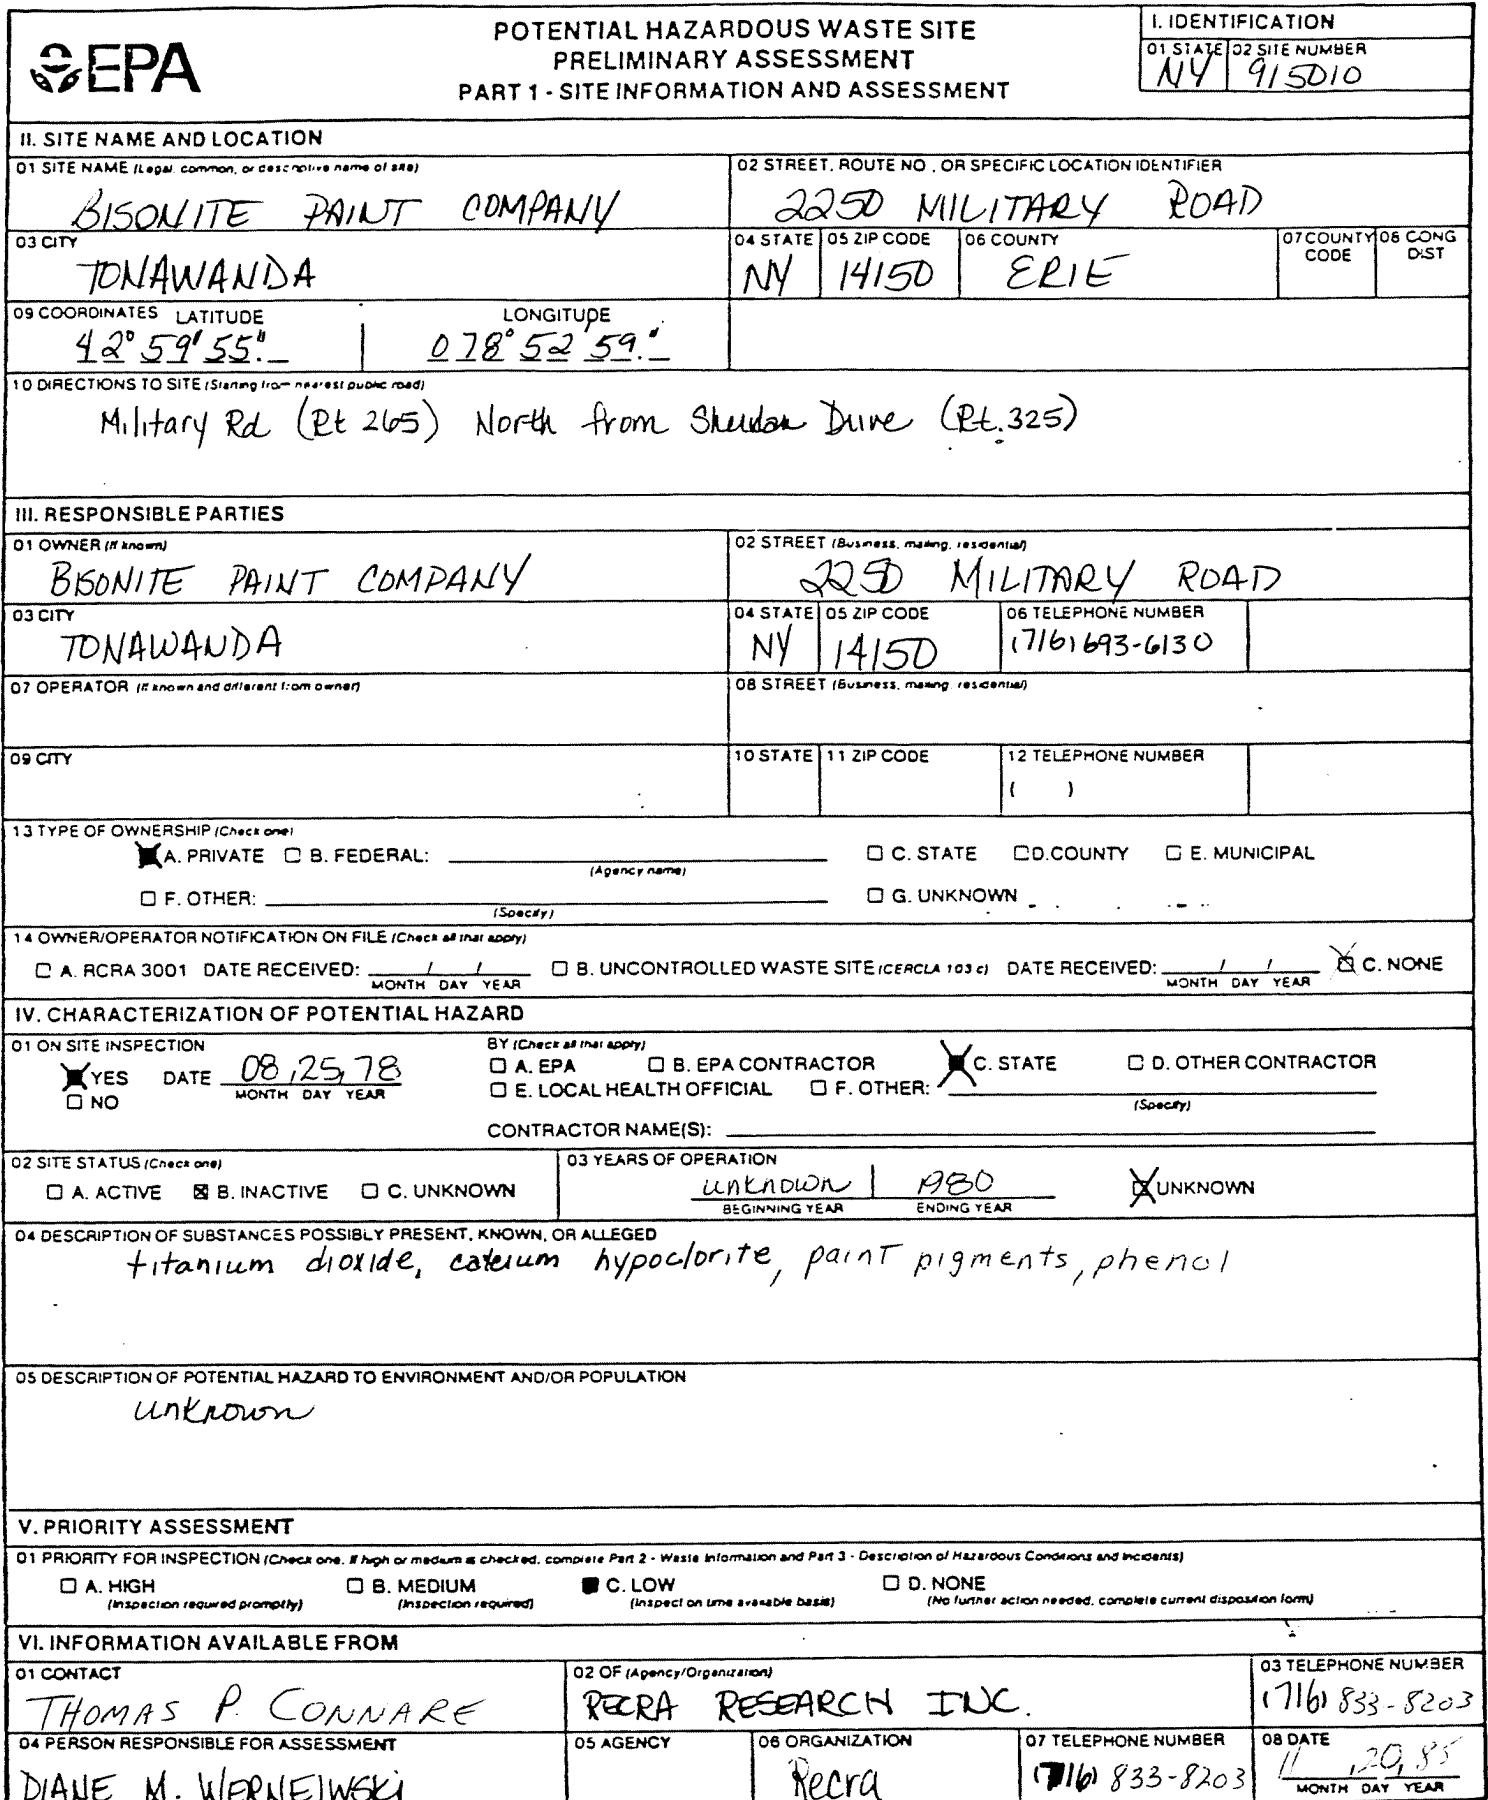 EPA
POTENTIAL HAZARDOUS WASTE SITE
PRELIMINARY ASSESSMENT
PART 1 - SITE INFORMATION AND ASSESSMENT
I. IDENTIFICATION
01 STATE 02 SITE NUMBER
NY 915010
II. SITE NAME AND LOCATION
01 SITE NAME (Legal, common, or descriptive name of site)
BISONITE PAINT COMPANY
02 STREET, ROUTE NO., OR SPECIFIC LOCATION IDENTIFIER
2250 MILITARY ROAD
03 CITY
TONAWANDA
04 STATE 05 ZIP CODE 06 COUNTY 07 COUNTY CODE 08 CONG DIST
NY 14150 ERIE
09 COORDINATES LATITUDE LONGITUDE
42° 59' 55." 078° 52' 59."
10 DIRECTIONS TO SITE (Starting from nearest public road)
Military Rd (Rt 265) North from Sheridan Drive (Rt. 325)
III. RESPONSIBLE PARTIES
01 OWNER (if known)
BISONITE PAINT COMPANY
02 STREET (Business, mailing, residential)
2250 MILITARY ROAD
03 CITY
TONAWANDA
04 STATE 05 ZIP CODE 06 TELEPHONE NUMBER
NY 14150 (716) 693-6130
07 OPERATOR (if known and different from owner)
08 STREET (Business, mailing, residential)
09 CITY
10 STATE 11 ZIP CODE 12 TELEPHONE NUMBER
( )
13 TYPE OF OWNERSHIP (Check one)
A. PRIVATE B. FEDERAL: C. STATE D. COUNTY E. MUNICIPAL
(Agency name)
F. OTHER: G. UNKNOWN
(Specify)
14 OWNER/OPERATOR NOTIFICATION ON FILE (Check all that apply)
A. RCRA 3001 DATE RECEIVED: / / B. UNCONTROLLED WASTE SITE (CERCLA 103 c) DATE RECEIVED: / / C. NONE
MONTH DAY YEAR MONTH DAY YEAR
IV. CHARACTERIZATION OF POTENTIAL HAZARD
01 ON SITE INSPECTION
YES DATE 08, 25, 78
MONTH DAY YEAR
NO
BY (Check all that apply)
A. EPA B. EPA CONTRACTOR C. STATE D. OTHER CONTRACTOR
E. LOCAL HEALTH OFFICIAL F. OTHER:
(Specify)
CONTRACTOR NAME(S):
02 SITE STATUS (Check one)
A. ACTIVE B. INACTIVE C. UNKNOWN
03 YEARS OF OPERATION
unknown 1980 UNKNOWN
BEGINNING YEAR ENDING YEAR
04 DESCRIPTION OF SUBSTANCES POSSIBLY PRESENT, KNOWN, OR ALLEGED
titanium dioxide, hypoclorite, paint pigments, phenol
05 DESCRIPTION OF POTENTIAL HAZARD TO ENVIRONMENT AND/OR POPULATION
unknown
V. PRIORITY ASSESSMENT
01 PRIORITY FOR INSPECTION (Check one. If high or medium is checked, complete Part 2 - Waste Information and Part 3 - Description of Hazardous Conditions and Incidents)
A. HIGH B. MEDIUM C. LOW D. NONE
(Inspection required promptly) (Inspection required) (Inspect on time available basis) (No further action needed, complete current disposition form)
VI. INFORMATION AVAILABLE FROM
01 CONTACT
THOMAS P. CONNARE
02 OF (Agency/Organization)
RECRA RESEARCH INC.
03 TELEPHONE NUMBER
(716) 833-8203
04 PERSON RESPONSIBLE FOR ASSESSMENT
DIANE M.
05 AGENCY
06 ORGANIZATION
Recra
07 TELEPHONE NUMBER
(716) 833-8203
08 DATE
11, 20, 85
MONTH DAY YEAR